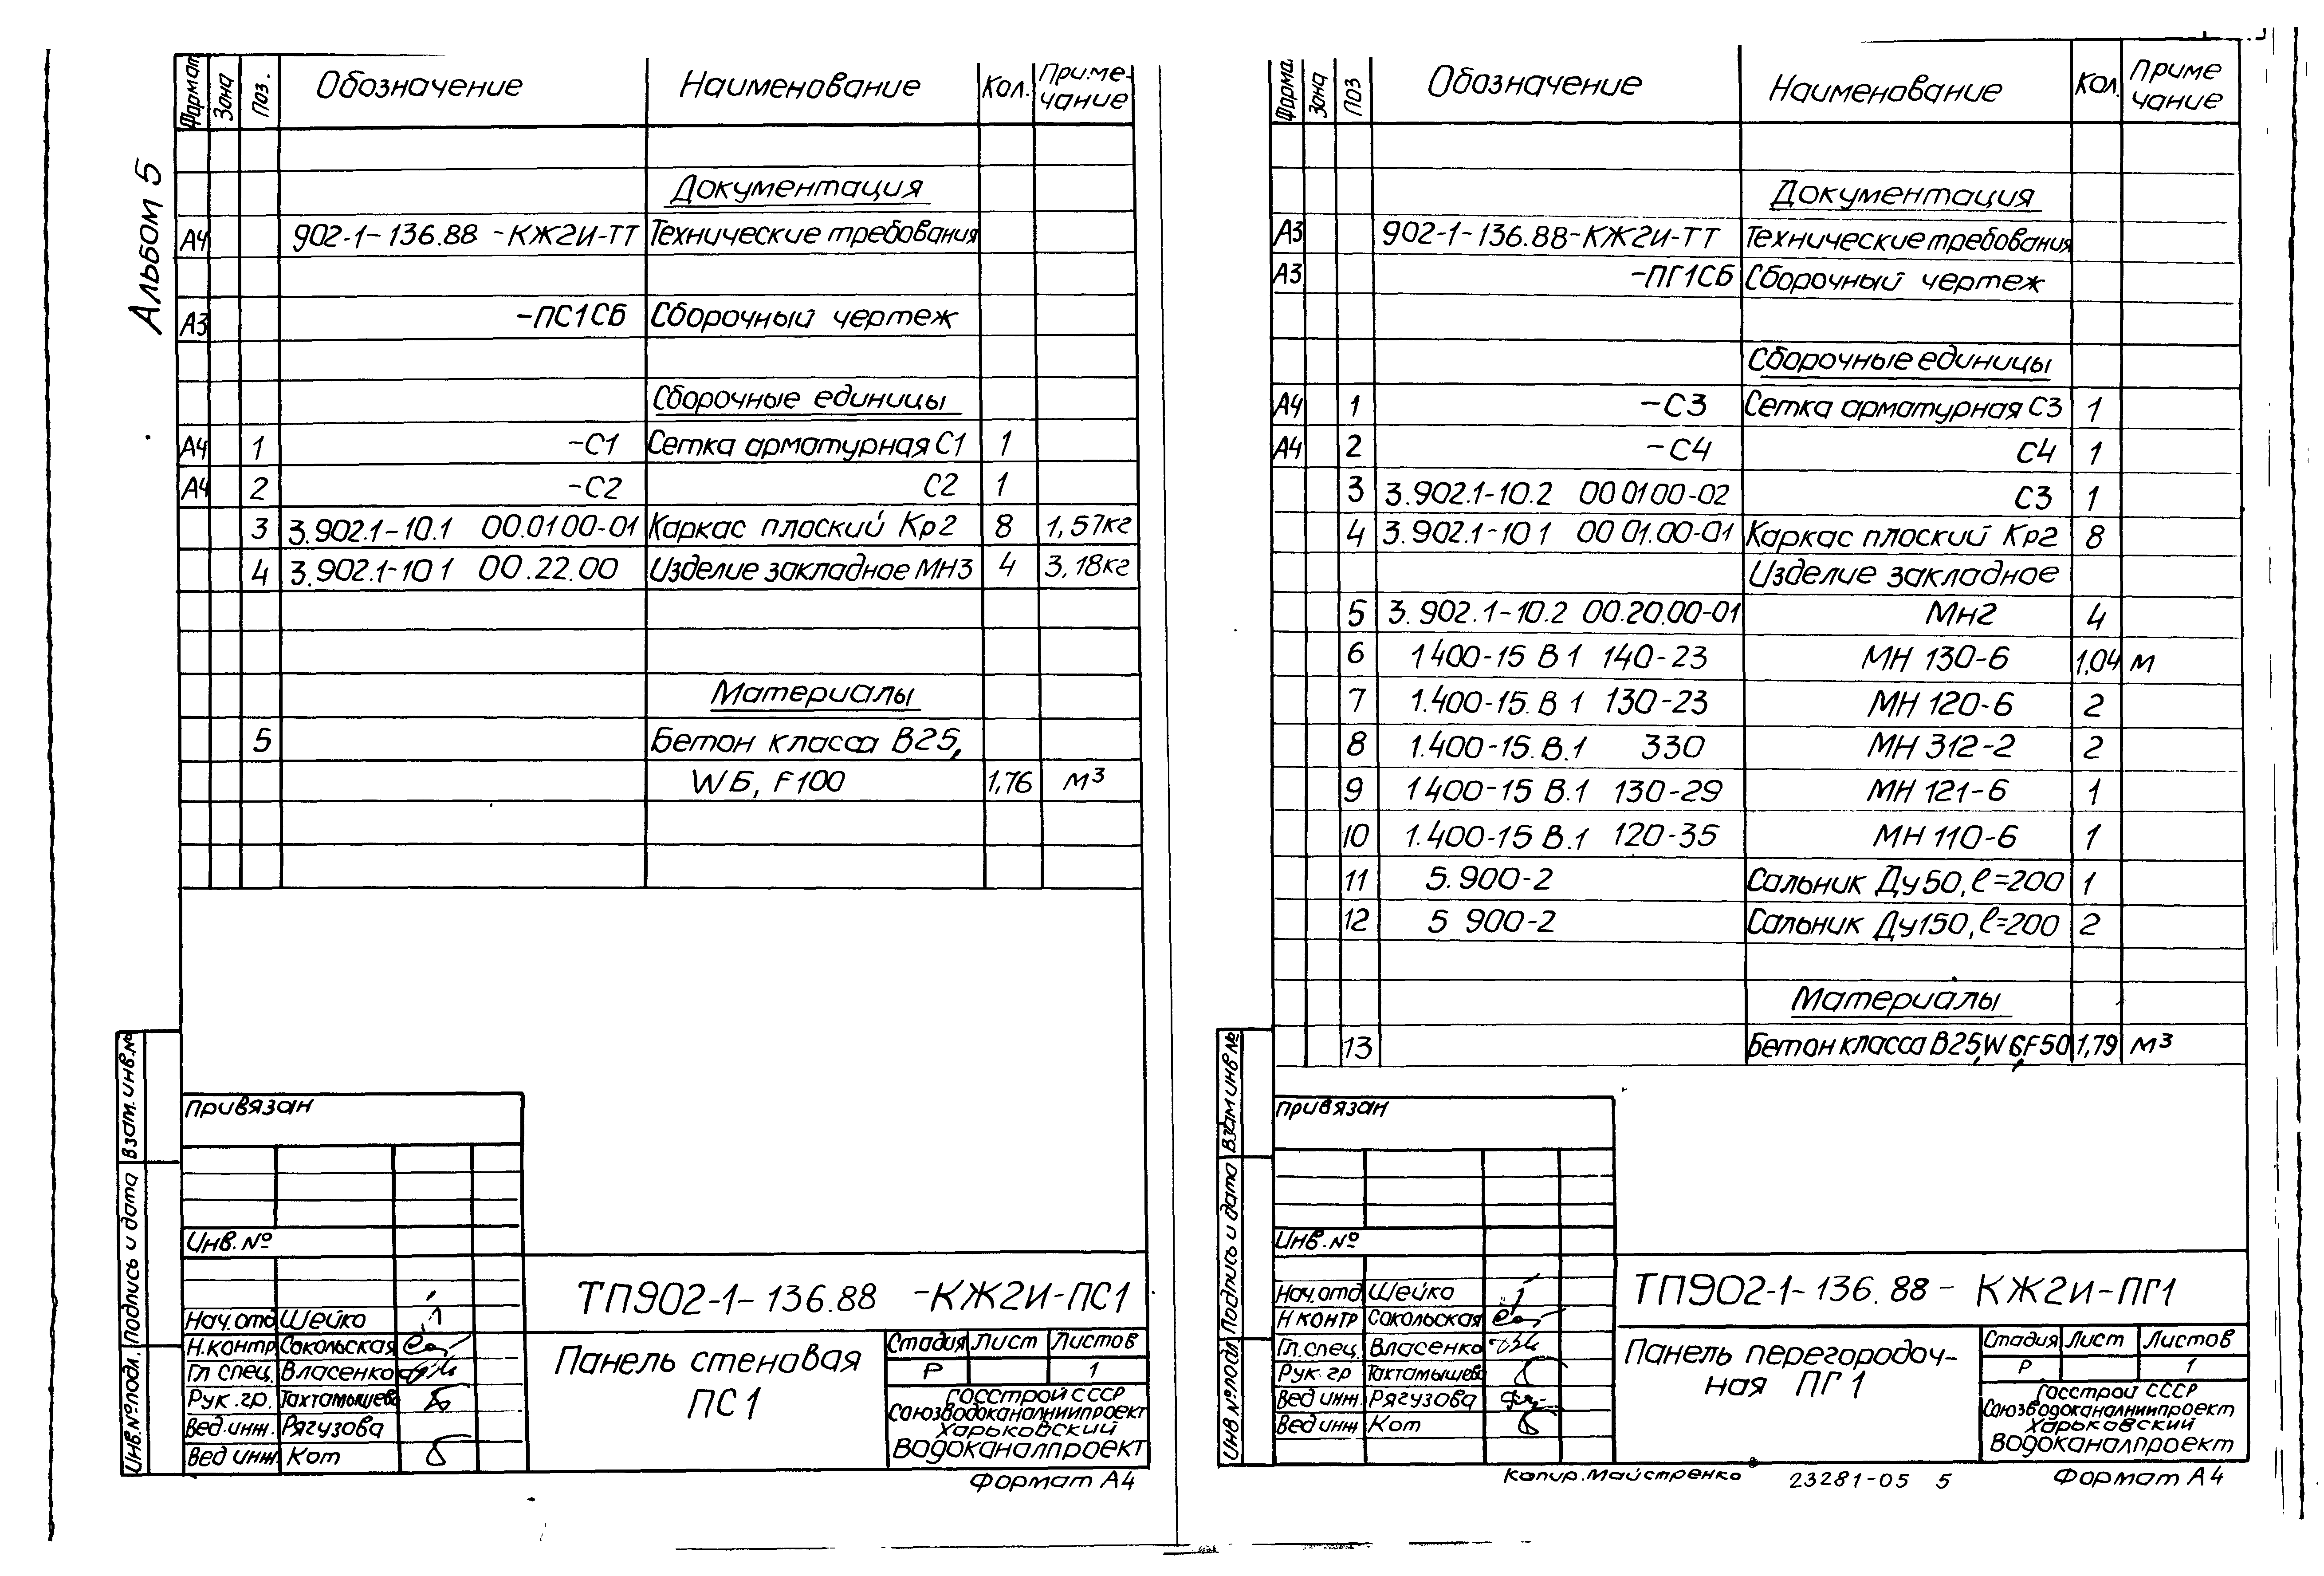 Альбом 5
Формат Зона Поз. Обозначение Наименование Кол. Приме-чание
Документация
А4 902-1-136.88 -КЖ2И-ТТ Технические требования
А3 -ПС1СБ Сборочный чертеж
Сборочные единицы
А4 1 -С1 Сетка арматурная С1 1
А4 2 -С2 С2 1
3 3.902.1-10.1 00.0100-01 Каркас плоский Кр2 8 1,57кг
4 3.902.1-10 1 00.22.00 Изделие закладное МН3 4 3,18кг
Материалы
5 Бетон класса В25,
W6, F100 1,76 м³
Привязан
Инв. №
Взам. инв. №
Подпись и дата
Инв. № подл.
ТП902-1-136.88 -КЖ2И-ПС1
Нач. отд Шейко
Н. контр Сокольская
Гл спец. Власенко
Рук. гр. Тахтамышева
Вед. инж. Рягузова
Вед инж. Кот
Панель стеновая
ПС 1
Стадия Лист Листов
Р 1
Госстрой СССР
Союзводоканалниипроект
Харьковский
Водоканалпроект
Формат А4
Форма. Зона Поз Обозначение Наименование Кол. Приме чание
Документация
А3 902-1-136.88-КЖ2И-ТТ Технические требования
А3 -ПГ1СБ Сборочный чертеж
Сборочные единицы
А4 1 -С3 Сетка арматурная С3 1
А4 2 -С4 С4 1
3 3.902.1-10.2 00 01 00-02 С3 1
4 3.902.1-10 1 00 01.00-01 Каркас плоский Кр2 8
Изделие закладное
5 3.902.1-10.2 00.20.00-01 Мн2 4
6 1 400-15 В 1 140-23 МН 130-6 1,04 м
7 1.400-15. В 1 130-23 МН 120-6 2
8 1.400-15. В.1 330 МН 312-2 2
9 1 400-15 В.1 130-29 МН 121-6 1
10 1.400-15 В.1 120-35 МН 110-6 1
11 5.900-2 Сальник Ду50, ℓ=200 1
12 5 900-2 Сальник Ду150, ℓ=200 2
Материалы
13 Бетон класса В25,W 6,F50 1,79 м³
Привязан
Инв. №
Взам инв №
Подпись и дата
Инв № подл
ТП902-1-136.88- КЖ2И-ПГ1
Нач. отд. Шейко
Н контр Сокольская
Гл. спец. Власенко
Рук. гр Тахтамышева
Вед инж. Рягузова
Вед инж Кот
Панель перегородоч-
ная ПГ 1
Стадия Лист Листов
Р 1
Госстрой СССР
Союзводоканалниипроект
Харьковский
Водоканалпроект
Копир. Майстренко 23281-05 5 Формат А4